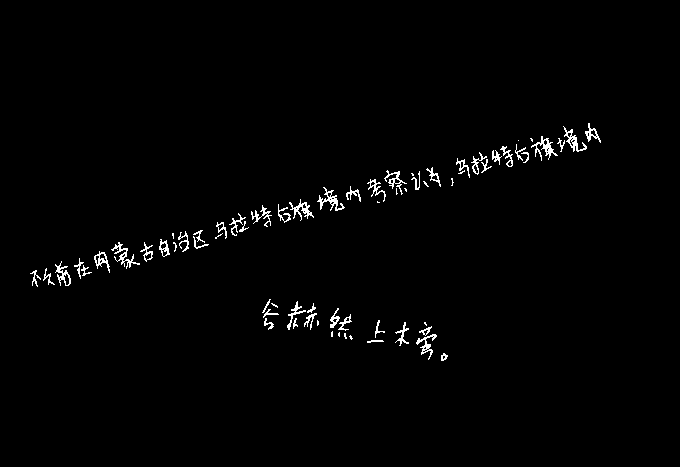 不久前在内蒙古自治区乌拉特后旗境内考察认为,乌拉特后旗境内
谷赫然上。